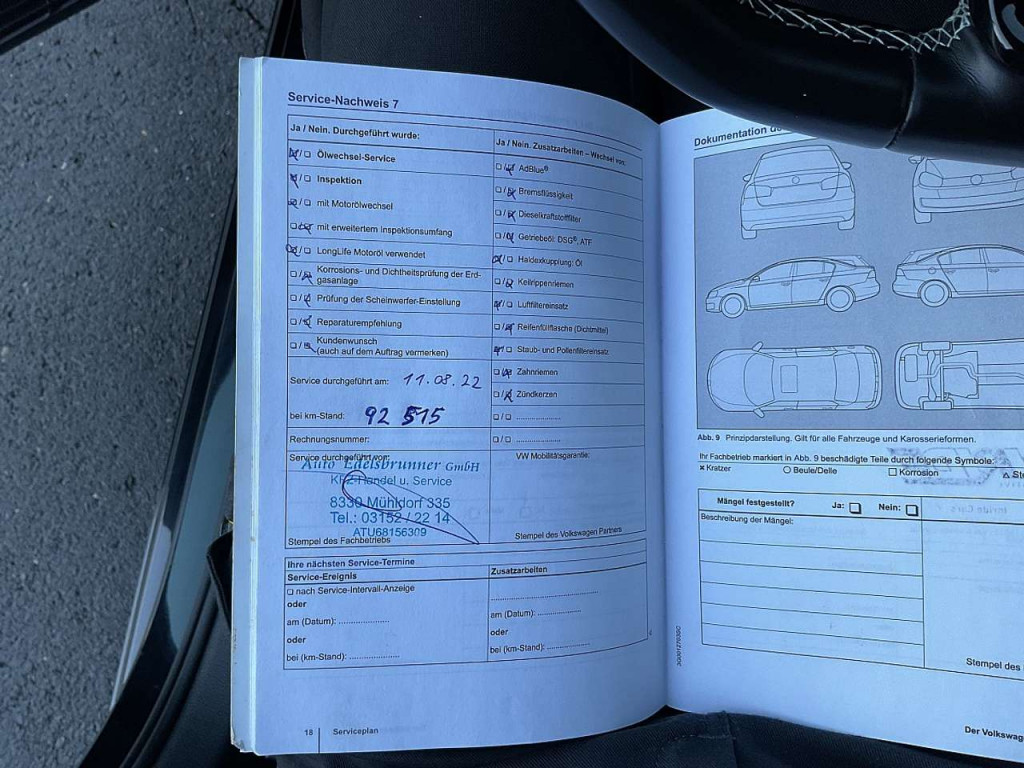 Service-Nachweis 7
Ja / Nein. Durchgeführt wurde:
☒/☐ Ölwechsel-Service
☒/☐ Inspektion
☒/☐ mit Motorölwechsel
☐/☒ mit erweitertem Inspektionsumfang
☒/☐ LongLife Motoröl verwendet
☐/☒ Korrosions- und Dichtheitsprüfung der Erd-
gasanlage
☐/☒ Prüfung der Scheinwerfer-Einstellung
☐/☒ Reparaturempfehlung
☐/☒ Kundenwunsch
(auch auf dem Auftrag vermerken)
Service durchgeführt am: 11.08.22
bei km-Stand: 92 515
Rechnungsnummer:
Service durchgeführt von:
Auto Edelsbrunner GmbH
KFZ-Handel u. Service
8330 Mühldorf 335
Tel.: 03152 / 22 14
ATU68156309
Stempel des Fachbetriebs
Ja / Nein. Zusatzarbeiten – Wechsel von:
☐/☒ AdBlue®
☐/☒ Bremsflüssigkeit
☐/☒ Dieselkraftstofffilter
☐/☒ Getriebeöl: DSG®, ATF
☒/☐ Haldexkupplung: Öl
☐/☒ Keilrippenriemen
☒/☐ Luftfiltereinsatz
☐/☒ Reifenfüllflasche (Dichtmittel)
☒/☐ Staub- und Pollenfiltereinsatz
☐/☒ Zahnriemen
☐/☒ Zündkerzen
☐/☐ ..................
☐/☐ ..................
VW Mobilitätsgarantie:
Stempel des Volkswagen Partners
Ihre nächsten Service-Termine
Service-Ereignis
☐ nach Service-Intervall-Anzeige
oder
am (Datum): ....................
oder
bei (km-Stand): ....................
Zusatzarbeiten
..........................................
am (Datum): .................
oder
bei (km-Stand): .................
18
Serviceplan
Dokumentation
Abb. 9 Prinzipdarstellung. Gilt für alle Fahrzeuge und Karosserieformen.
Ihr Fachbetrieb markiert in Abb. 9 beschädigte Teile durch folgende Symbole:
× Kratzer
○ Beule/Delle
☐ Korrosion
Mängel festgestellt?
Ja: ☐
Nein: ☐
Beschreibung der Mängel:
Stempel des
Der Volkswagen